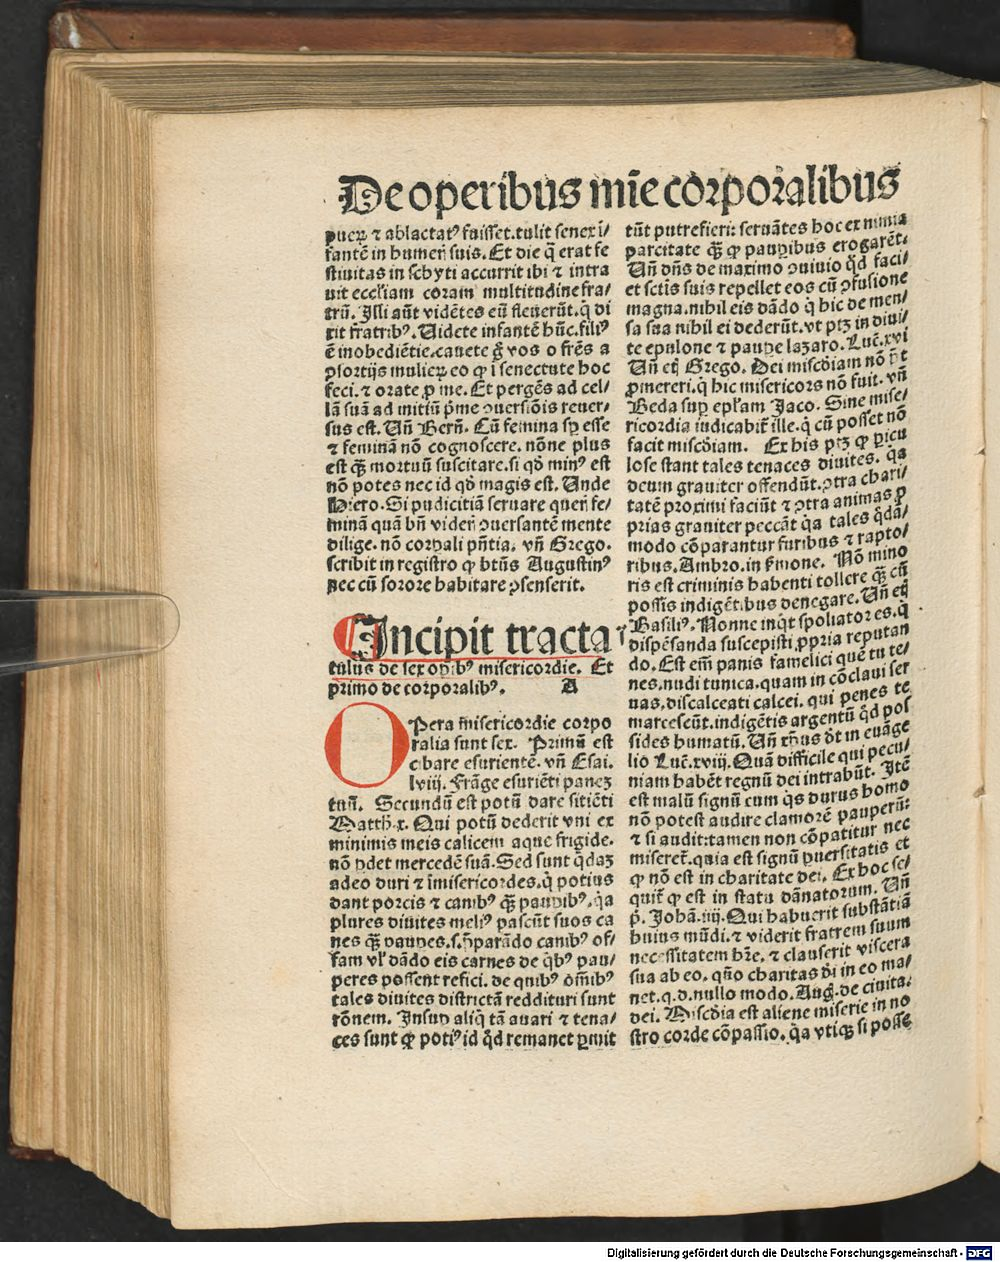 De operibus mīe corporalibus
pueꝝ ⁊ ablactatꝰ fuisset. tulit senex ī/
fantē in humeř suis. Et die q̄ erat fe
stiuitas in schyti accurrit ibi ⁊ intra
uit eccľiam coram multitudine fra/
trū. Illi aūt vidētes eū fleuerūt. q̄ di
xit fratribꝰ. Uidete infantē hūc. filiꝰ
ē inobediētie. cauete g̊ vos o frēs a
ꝯsortijs mulieꝝ eo ꝙ ī senectute hoc
feci. ⁊ orate ꝓ me. Et pergēs ad cel/
lā suā ad initiū pͥme ꝯuersiōis reuer/
sus est. Uñ Berñ. Cū femina sꝑ esse
⁊ feminā nō cognoscere. nōne plus
est q̄ꝫ mortuū suscitare. si qď minꝰ est
nō potes nec id qď magis est. Unde
Hiero. Si pudicitiā seruare queri fe/
minā quā bñ videř ꝯuersantē mente
dilige. nō corꝑali pñtia. vñ Grego.
scribit in registro ꝙ btūs Augustinꝰ
nec cū sorore habitare ꝯsenserit.
Incipit tracta/
tulus de sex oꝑibꝰ misericordie. Et
primo de corporalibꝰ. A
OPera misericordie corpo
ralia sunt sex. Primū est
cibare esurientē. vñ Esai.
lviij. Frāge esuriēti paneʒ
tuū. Secundū est potū dare sitiēti
Matth. x. Qui potū dederit vni ex
minimis meis calicem aque frigide.
nō ꝑdet mercedē suā. Sed sunt q̄daʒ
adeo duri ⁊ īmisericordes. q̄ potius
dant porcis ⁊ canibꝰ q̄ꝫ pauꝑibꝰ. qa
plures diuites meliꝰ pascūt suos ca
nes q̄ꝫ pauꝑes. s. ꝑparādo canibꝰ of/
fam vľ dādo eis carnes de q̇bꝰ pau/
peres possent refici. de quibꝰ om̄ibꝰ
tales diuites districtā reddituri sunt
rōnem. Insuꝑ aliq̇ tā auari ⁊ tena/
ces sunt ꝙ potiꝰ id q̇d remanet ꝑmit
tūt putrefieri: seruātes hoc ex nimia
parcitate q̄ꝫ ꝙ pauꝑibus erogarēt.
Uñ dñs de maximo ꝯuiuio q̇d faci/
et sctīs suis repellet eos cū ꝯfusione
magna. nihil eis dādo q̇ hic de men/
sa sua nihil ei dederūt. vt ptꝫ in diui/
te epulone ⁊ pauꝑe lazaro. Luc̄. xvi
Uñ etͥ Grego. Dei miscďiam nō pͦt
ꝓmereri. q̇ hic misericors nō fuit. vñ
Beda suꝑ epľam Jaco. Sine mise/
ricordia iudicabit̃ ille. q̇ cū posset nō
facit miscďiam. Ex his ptꝫ ꝙ ꝑicu
lose stant tales tenaces diuites. q̇a
deum grauiter offendūt. ꝯtra chari/
tatē proximi faciūt ⁊ ꝯtra animas ꝓ
prias grauiter peccāt q̇a tales q̇dā/
modo cōparantur furibus ⁊ rapto/
ribus. Ambro. in fͥmone. Nō mino
ris est criminis habenti tollere q̄ꝫ cū
possis indigētibus denegare. Uñ etͥ
Basiliꝰ. Nonne inq̇t spoliator es. q̇
dispēsanda suscepisti ꝓpria reputan
do. Est em̄ panis famelici quē tu te/
nes. nudi tunica. quam in cōclaui ser
uas. discalceati calcei. qui penes te
marcescūt. indigētis argentū q̇d pos
sides humatū. Uñ xp̄us dͦt in euāge
lio Luc̄. xviij. Quā difficile qui pecu/
niam habēt regnū dei intrabūt. Itē
est malū signū cum q̇s durus homo
nō potest audire clamorē pauperū:
⁊ si audit: tamen non cōpatitur nec
miseret̃. quia est signū ꝑuersitatis et
ꝙ nō est in charitate dei. Ex hoc se/
quit̃ ꝙ est in statu dānatorum. Uñ
pͥ. Johā. iij. Qui habuerit substātiā
huius mūdi. ⁊ viderit fratrem suum
necessitatem hr̄e. ⁊ clauserit viscera
sua ab eo. quō charitas dͥi in eo ma/
net. q. d. nullo modo. Aug̃. de ciuita.
dei. Miscďia est aliene miserie in no
stro corde cōpassio. q̇a vtiqꝫ si posse
Digitalisierung gefördert durch die Deutsche Forschungsgemeinschaft - DFG